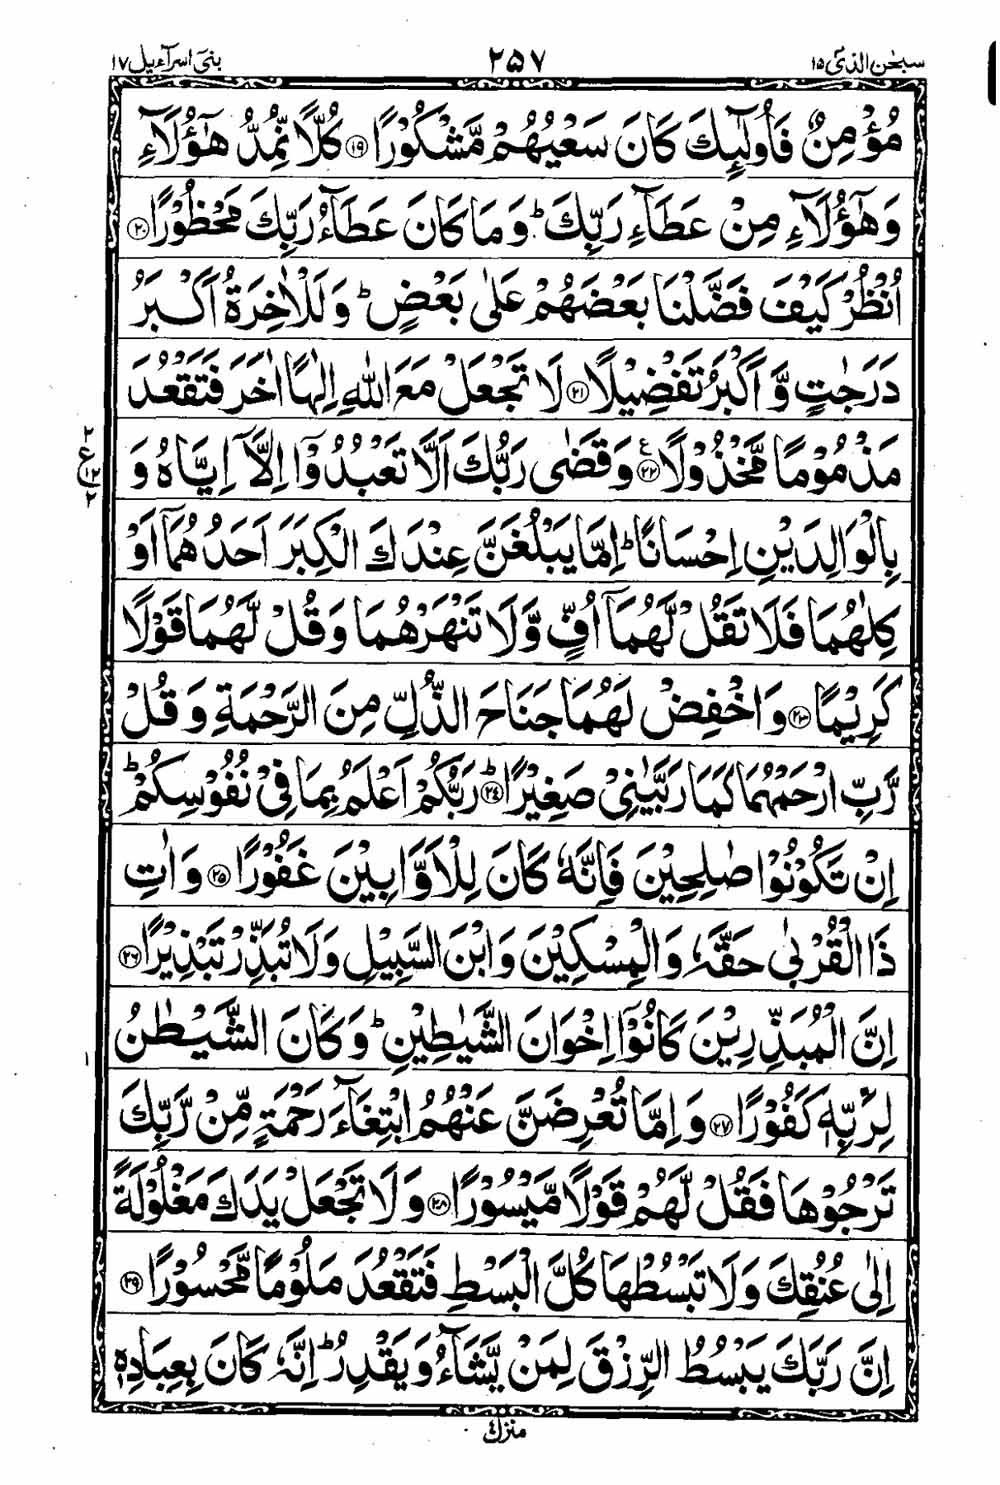 سبحٰن الذی ١٥
٢٥٧
بنی اسرآءیل ١٧
مُؤْمِنٌ فَاُولٰٓئِكَ كَانَ سَعْيُهُمْ مَّشْكُوْرًا ﴿١٩﴾ كُلًّا نُّمِدُّ هٰۤؤُلَآءِ
وَهٰۤؤُلَآءِ مِنْ عَطَآءِ رَبِّكَ ؕ وَمَا كَانَ عَطَآءُ رَبِّكَ مَحْظُوْرًا ﴿٢٠﴾
اُنْظُرْ كَيْفَ فَضَّلْنَا بَعْضَهُمْ عَلٰى بَعْضٍ ؕ وَلَلْاٰخِرَةُ اَكْبَرُ
دَرَجٰتٍ وَّاَكْبَرُ تَفْضِيْلًا ﴿٢١﴾ لَا تَجْعَلْ مَعَ اللّٰهِ اِلٰهًا اٰخَرَ فَتَقْعُدَ
مَذْمُوْمًا مَّخْذُوْلًا ﴿٢٢﴾ ع وَقَضٰى رَبُّكَ اَلَّا تَعْبُدُوْۤا اِلَّاۤ اِيَّاهُ وَ
٢
ع
١٢
٢
بِالْوَالِدَيْنِ اِحْسَانًا ؕ اِمَّا يَبْلُغَنَّ عِنْدَكَ الْكِبَرَ اَحَدُهُمَاۤ اَوْ
كِلٰهُمَا فَلَا تَقُلْ لَّهُمَاۤ اُفٍّ وَّلَا تَنْهَرْهُمَا وَقُلْ لَّهُمَا قَوْلًا
كَرِيْمًا ﴿٢٣﴾ وَاخْفِضْ لَهُمَا جَنَاحَ الذُّلِّ مِنَ الرَّحْمَةِ وَقُلْ
رَّبِّ ارْحَمْهُمَا كَمَا رَبَّيٰنِيْ صَغِيْرًا ؕ ﴿٢٤﴾ رَبُّكُمْ اَعْلَمُ بِمَا فِيْ نُفُوْسِكُمْ ؕ
اِنْ تَكُوْنُوْا صٰلِحِيْنَ فَاِنَّهٗ كَانَ لِلْاَوَّابِيْنَ غَفُوْرًا ﴿٢٥﴾ وَاٰتِ
ذَا الْقُرْبٰى حَقَّهٗ وَالْمِسْكِيْنَ وَابْنَ السَّبِيْلِ وَلَا تُبَذِّرْ تَبْذِيْرًا ﴿٢٦﴾
اِنَّ الْمُبَذِّرِيْنَ كَانُوْۤا اِخْوَانَ الشَّيٰطِيْنِ ؕ وَكَانَ الشَّيْطٰنُ
١
لِرَبِّهٖ كَفُوْرًا ﴿٢٧﴾ وَاِمَّا تُعْرِضَنَّ عَنْهُمُ ابْتِغَآءَ رَحْمَةٍ مِّنْ رَّبِّكَ
تَرْجُوْهَا فَقُلْ لَّهُمْ قَوْلًا مَّيْسُوْرًا ﴿٢٨﴾ وَلَا تَجْعَلْ يَدَكَ مَغْلُوْلَةً
اِلٰى عُنُقِكَ وَلَا تَبْسُطْهَا كُلَّ الْبَسْطِ فَتَقْعُدَ مَلُوْمًا مَّحْسُوْرًا ﴿٢٩﴾
اِنَّ رَبَّكَ يَبْسُطُ الرِّزْقَ لِمَنْ يَّشَآءُ وَيَقْدِرُ ؕ اِنَّهٗ كَانَ بِعِبَادِهٖ
منزل ٤